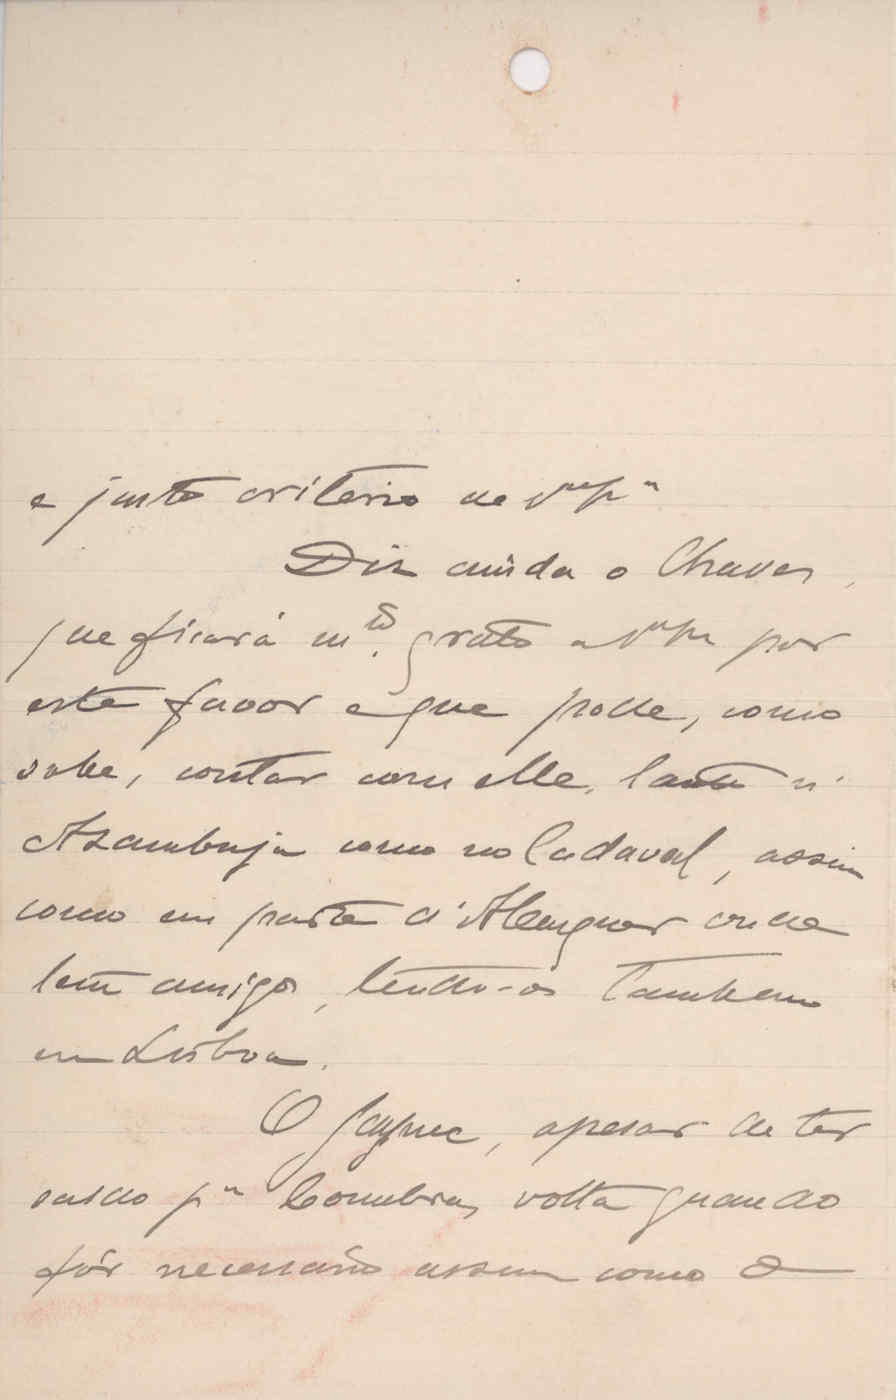 e justo criterio de
Diz ainda o Chaves,
que ficará m.to grato a por
este favor e que pode, como
sabe, contar com elle, tanto n'
Azambuja como no Cadaval, assim
como em parte d'Alenquer onde
tem amigos, tendo-os tambem
em Lisboa.
O Jayme, apesar de ter
saido pa Coimbra, volta quando
fôr necessario assim como o